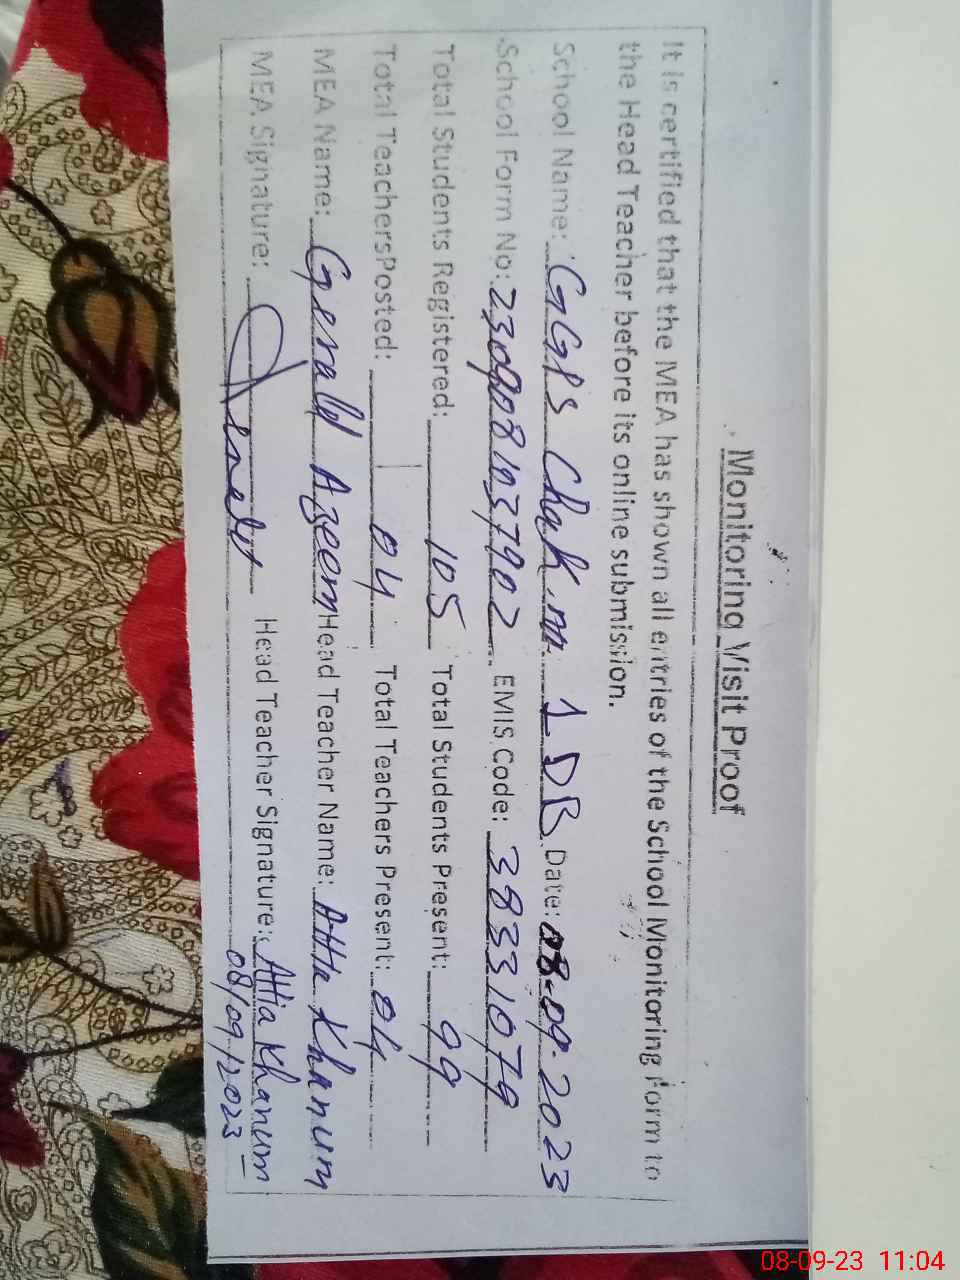 Monitoring Visit Proof
It is certified that the MEA has shown all entries of the School Monitoring Form to
the Head Teacher before its online submission.
School Name: GGPS Chak no. 1 DB Date: 08-09-2023
School Form No: 2309081937902 EMIS Code: 38331079
Total Students Registered: 105 Total Students Present: 99
Total TeachersPosted: 04 Total Teachers Present: 04
MEA Name: Gerald Azeem Head Teacher Name: Attia Khanum
MEA Signature: Head Teacher Signature: Attia Khanum
08/09/2023
08-09-23 11:04